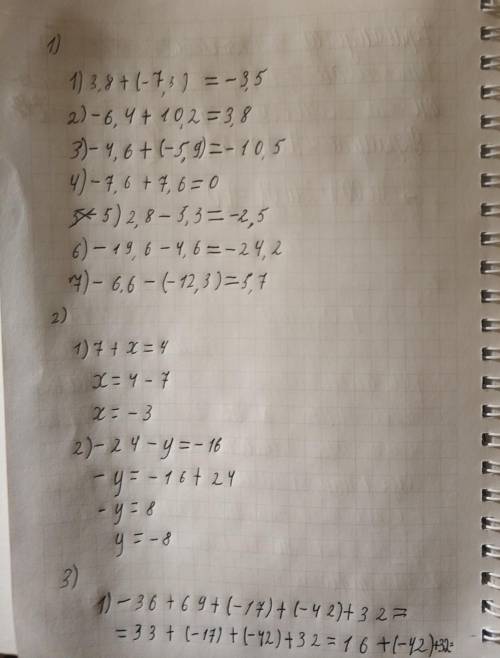 1)
1) 3,8 + (-7,3) = -3,5
2) -6,4 + 10,2 = 3,8
3) -4,6 + (-5,9) = -10,5
4) -7,6 + 7,6 = 0
5) 2,8 - 5,3 = -2,5
6) -19,6 - 4,6 = -24,2
7) -6,6 - (-12,3) = 5,7
2)
1) 7 + x = 4
x = 4 - 7
x = -3
2) -24 - y = -16
-y = -16 + 24
-y = 8
y = -8
3)
1) -36 + 69 + (-17) + (-42) + 32 =
= 33 + (-17) + (-42) + 32 = 16 + (-42) + 32 =